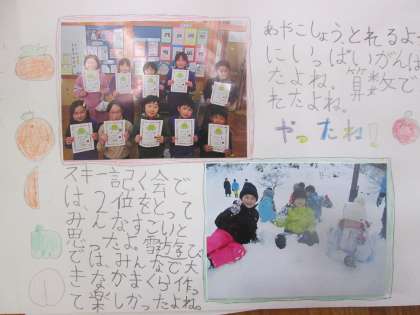 あやこしょうとれるよう
にいっぱいがんば
たよね。算数で
れたよね。
やったね!!
スキー記ろく会で
は、2位をとって
みんなすごいと
思った。雪遊び
ではみんなで大
きなかまくら作っ
て楽しかったよね。